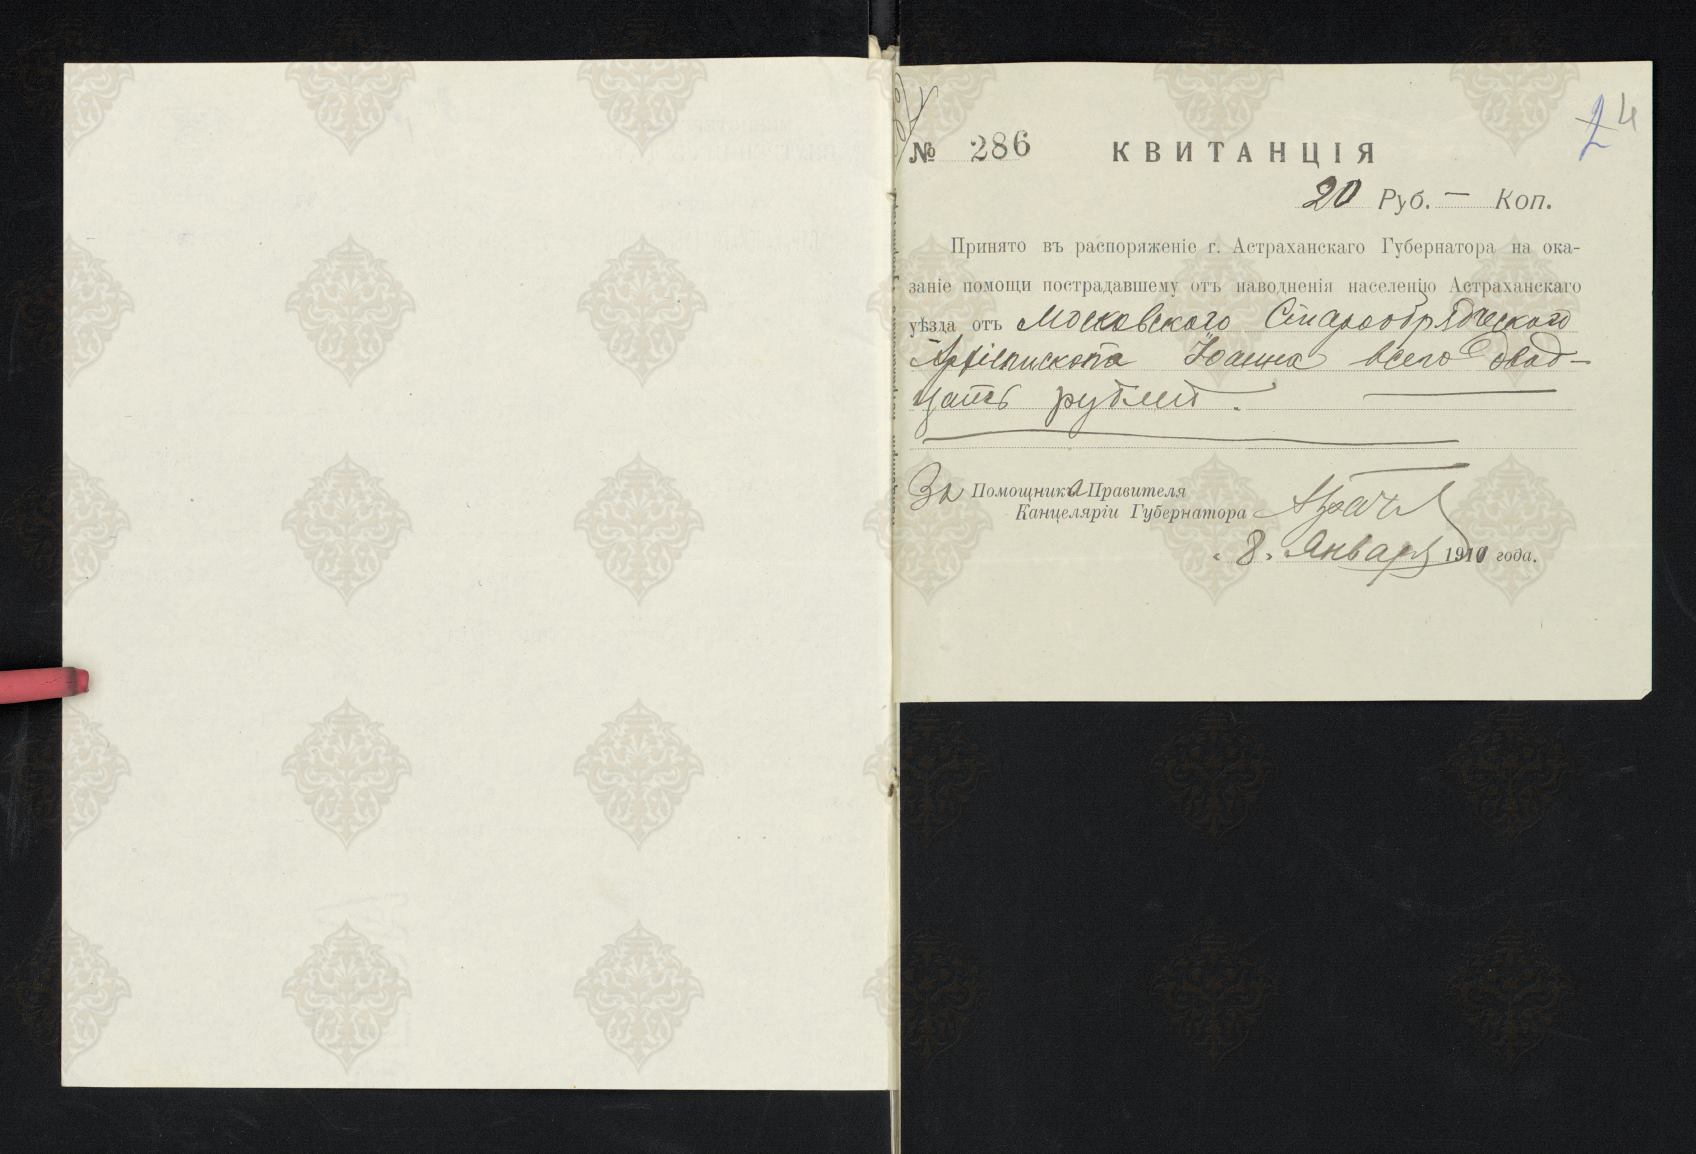 24
№ 286 КВИТАНЦІЯ
20 Руб. — Коп.
Принято въ распоряженіе г. Астраханскаго Губернатора на ока-
заніе помощи пострадавшему отъ наводненія населенію Астраханскаго
уѣзда отъ Московского Старообрядческого
Архіепископа Іоанна всего двад-
цать рублей.
За Помощника Правителя
Канцеляріи Губернатора
« 8 » Января 1910 года.